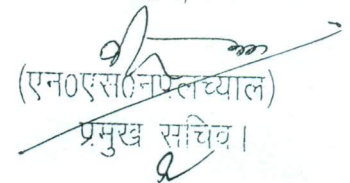 (एन0एस0नपलच्याल)
प्रमुख सचिव।